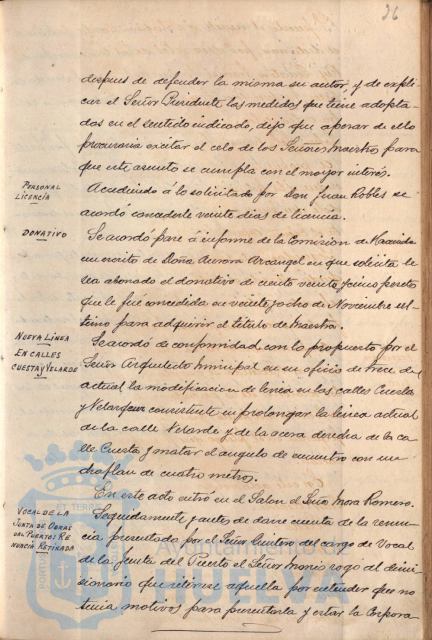 26
despues de defender la misma su autor, y de expli
car el Señor Presidente las medidas que tiene adopta-
das en el sentido indicado, dijo que apesar de ello
procuraria excitar el celo de los Señores Maestros para
que este asunto se cumpla con el mayor interés.
PERSONAL
LICENCIA
Accediendo á lo solicitado por Don Juan Robles se
acordó concederle veinte dias de licencia.
DONATIVO
Se acordó pase á informe de la Comision de Hacienda
un escrito de Doña Aurora Arcangel en que solicita le
sea abonado el donativo de ciento veinte y cinco pesetas
que le fue concedida en veinte y ocho de Noviembre ul-
timo para adquirir el titulo de Maestra.
NUEVA LINEA
EN CALLES
CUESTA Y VELARDE
Se acordó de conformidad con lo propuesto por el
Señor Arquitecto Municipal en su oficio de trece del
actual la modificacion de linea en las calles Cuesta
y Velarde consistente en prolongar la linea actual
de la calle Velarde y de la acera derecha de la ca-
lle Cuesta y matar el angulo de encuentro con un
chaflan de cuatro metros.
En este acto entró en el Salon el Señor Mora Romero.
VOCAL DE LA
JUNTA DE OBRAS
DEL PUERTO RE
NUNCIA RETIRADA
Seguidamente y antes de darse cuenta de la renun-
cia presentada por el Señor del cargo de Vocal
de la Junta del Puerto el Señor rogó al dimi-
sionario que retirase aquella por entender que no
tenia motivos para presentarla y estar la Corpora-
Ayuntamiento de
HUELVA